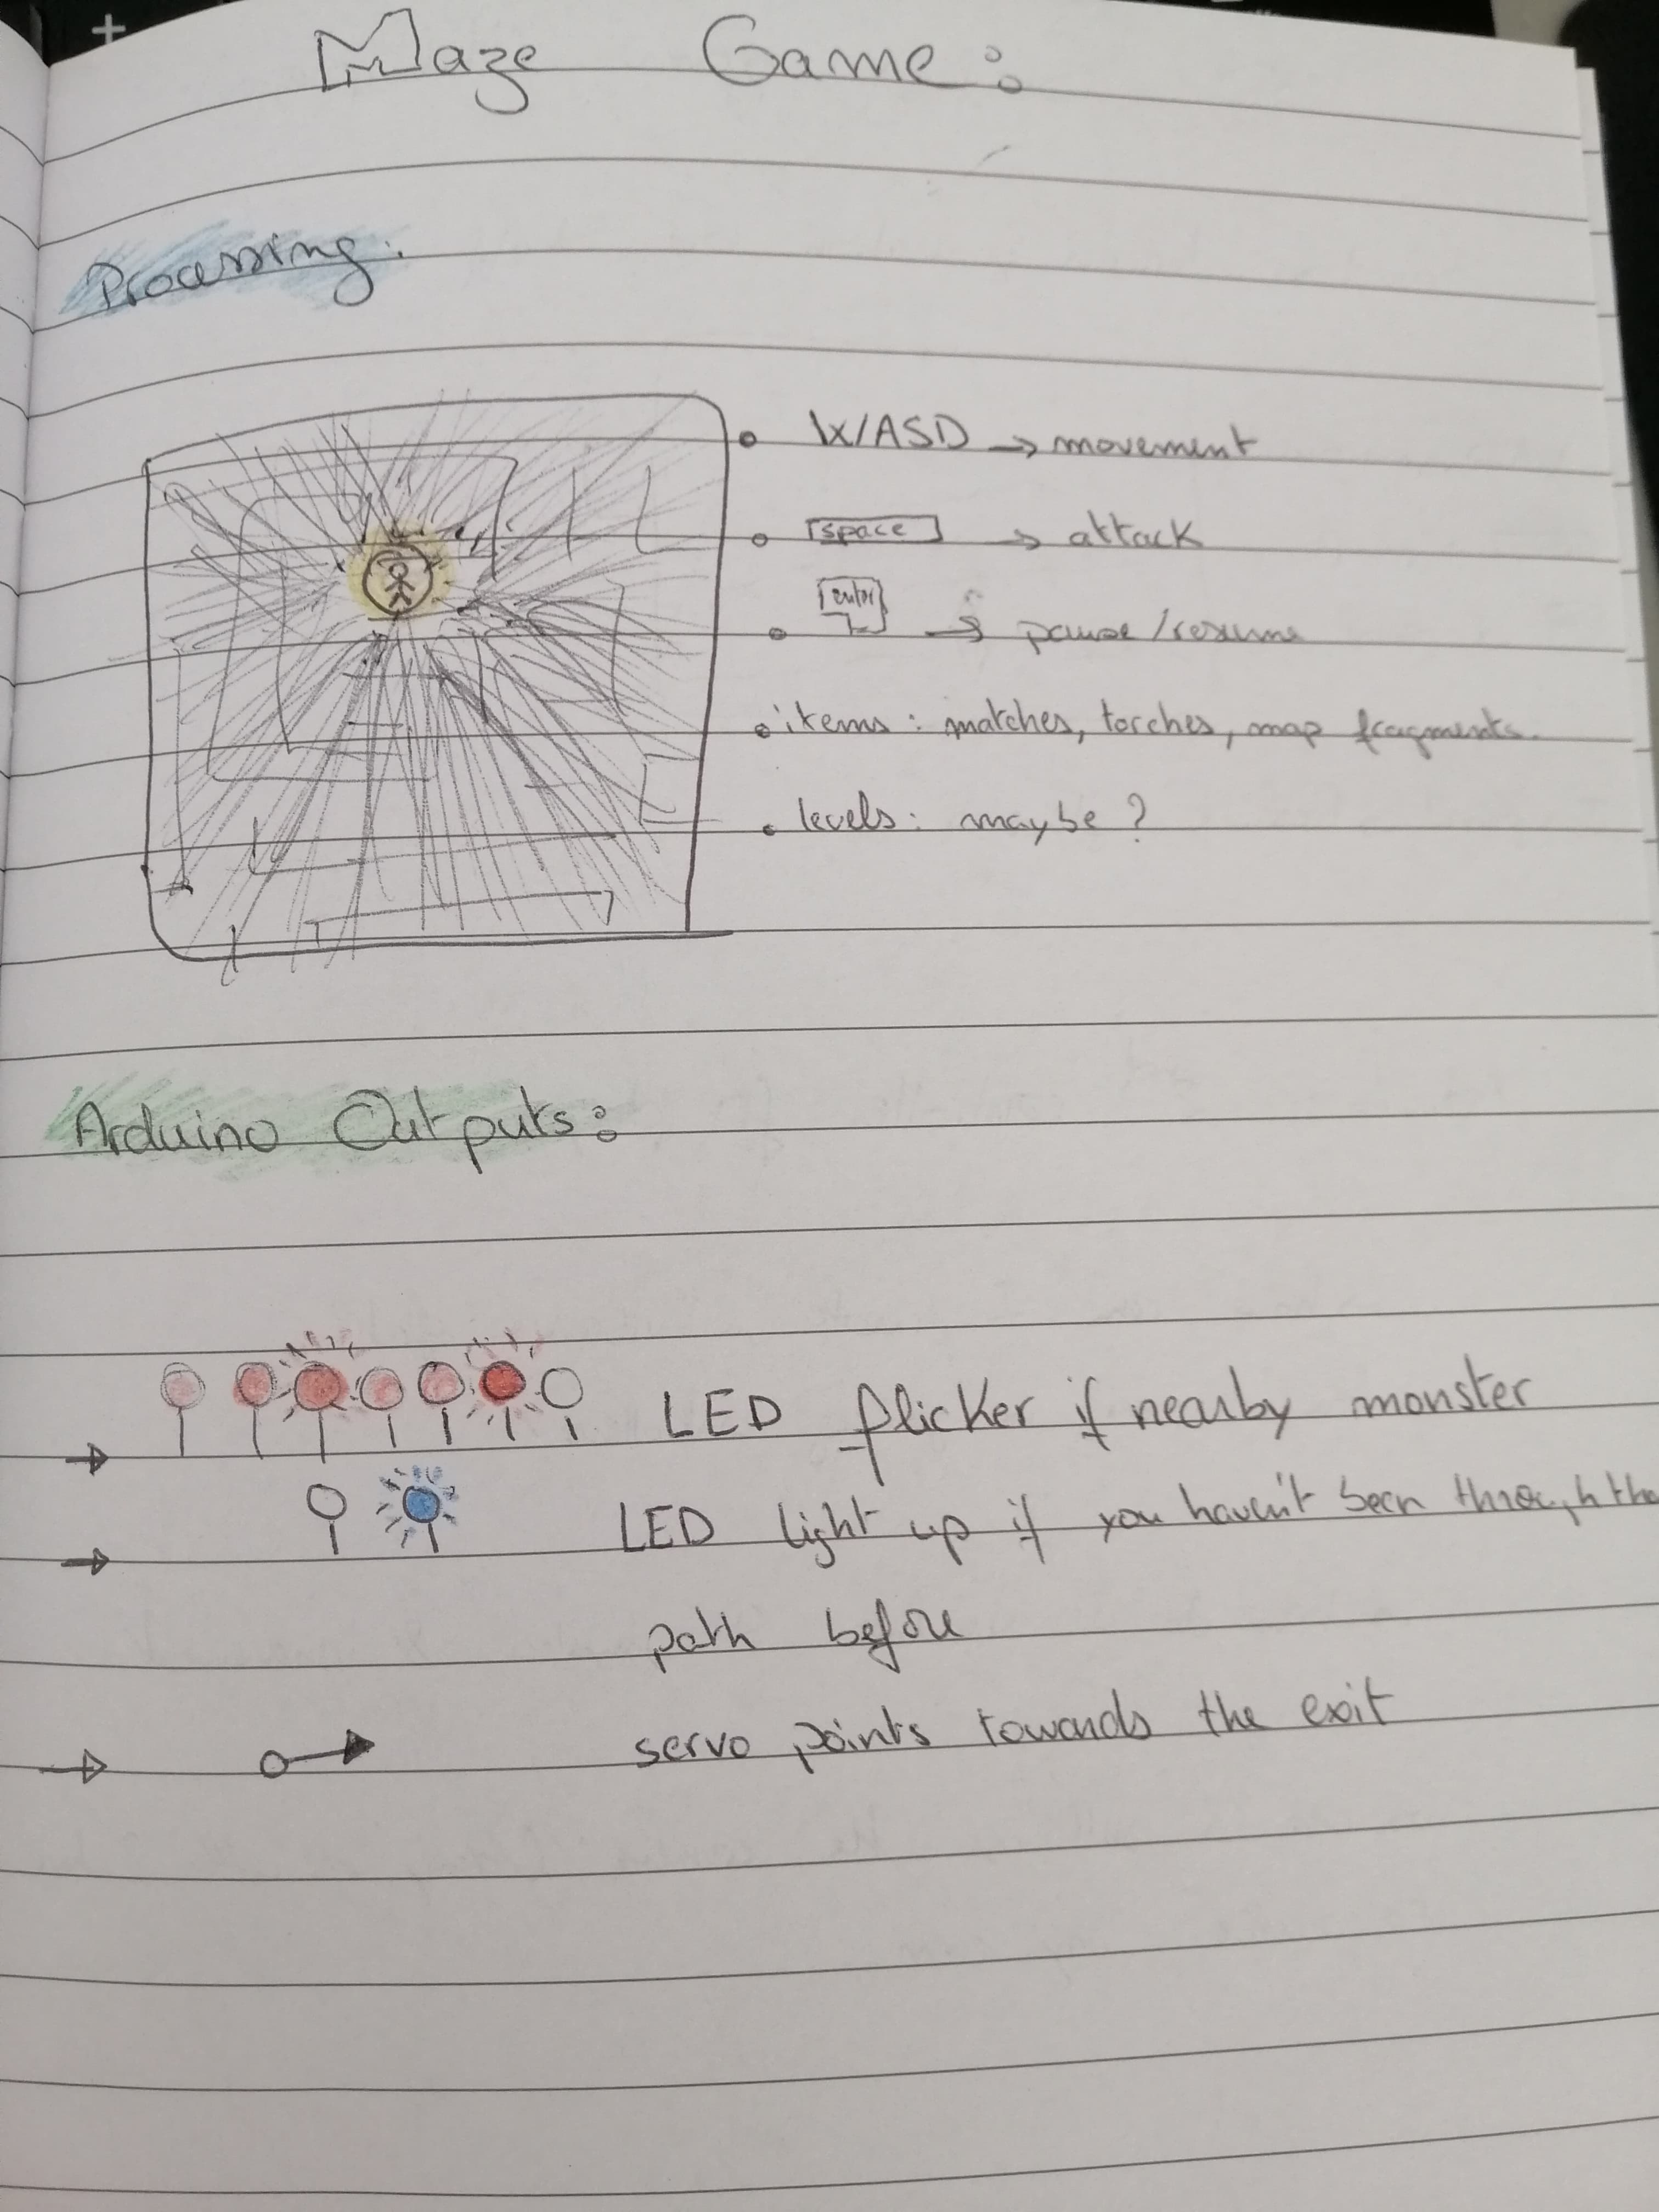 Maze Game:
Processing:
• WASD → movement
• space → attack
• enter → pause/resume
• items: matches, torches, map fragments.
• levels: maybe?
Arduino Outputs:
→ LED flicker if nearby monster
→ LED light up if you haven't been through the
path before
→ servo points towards the exit